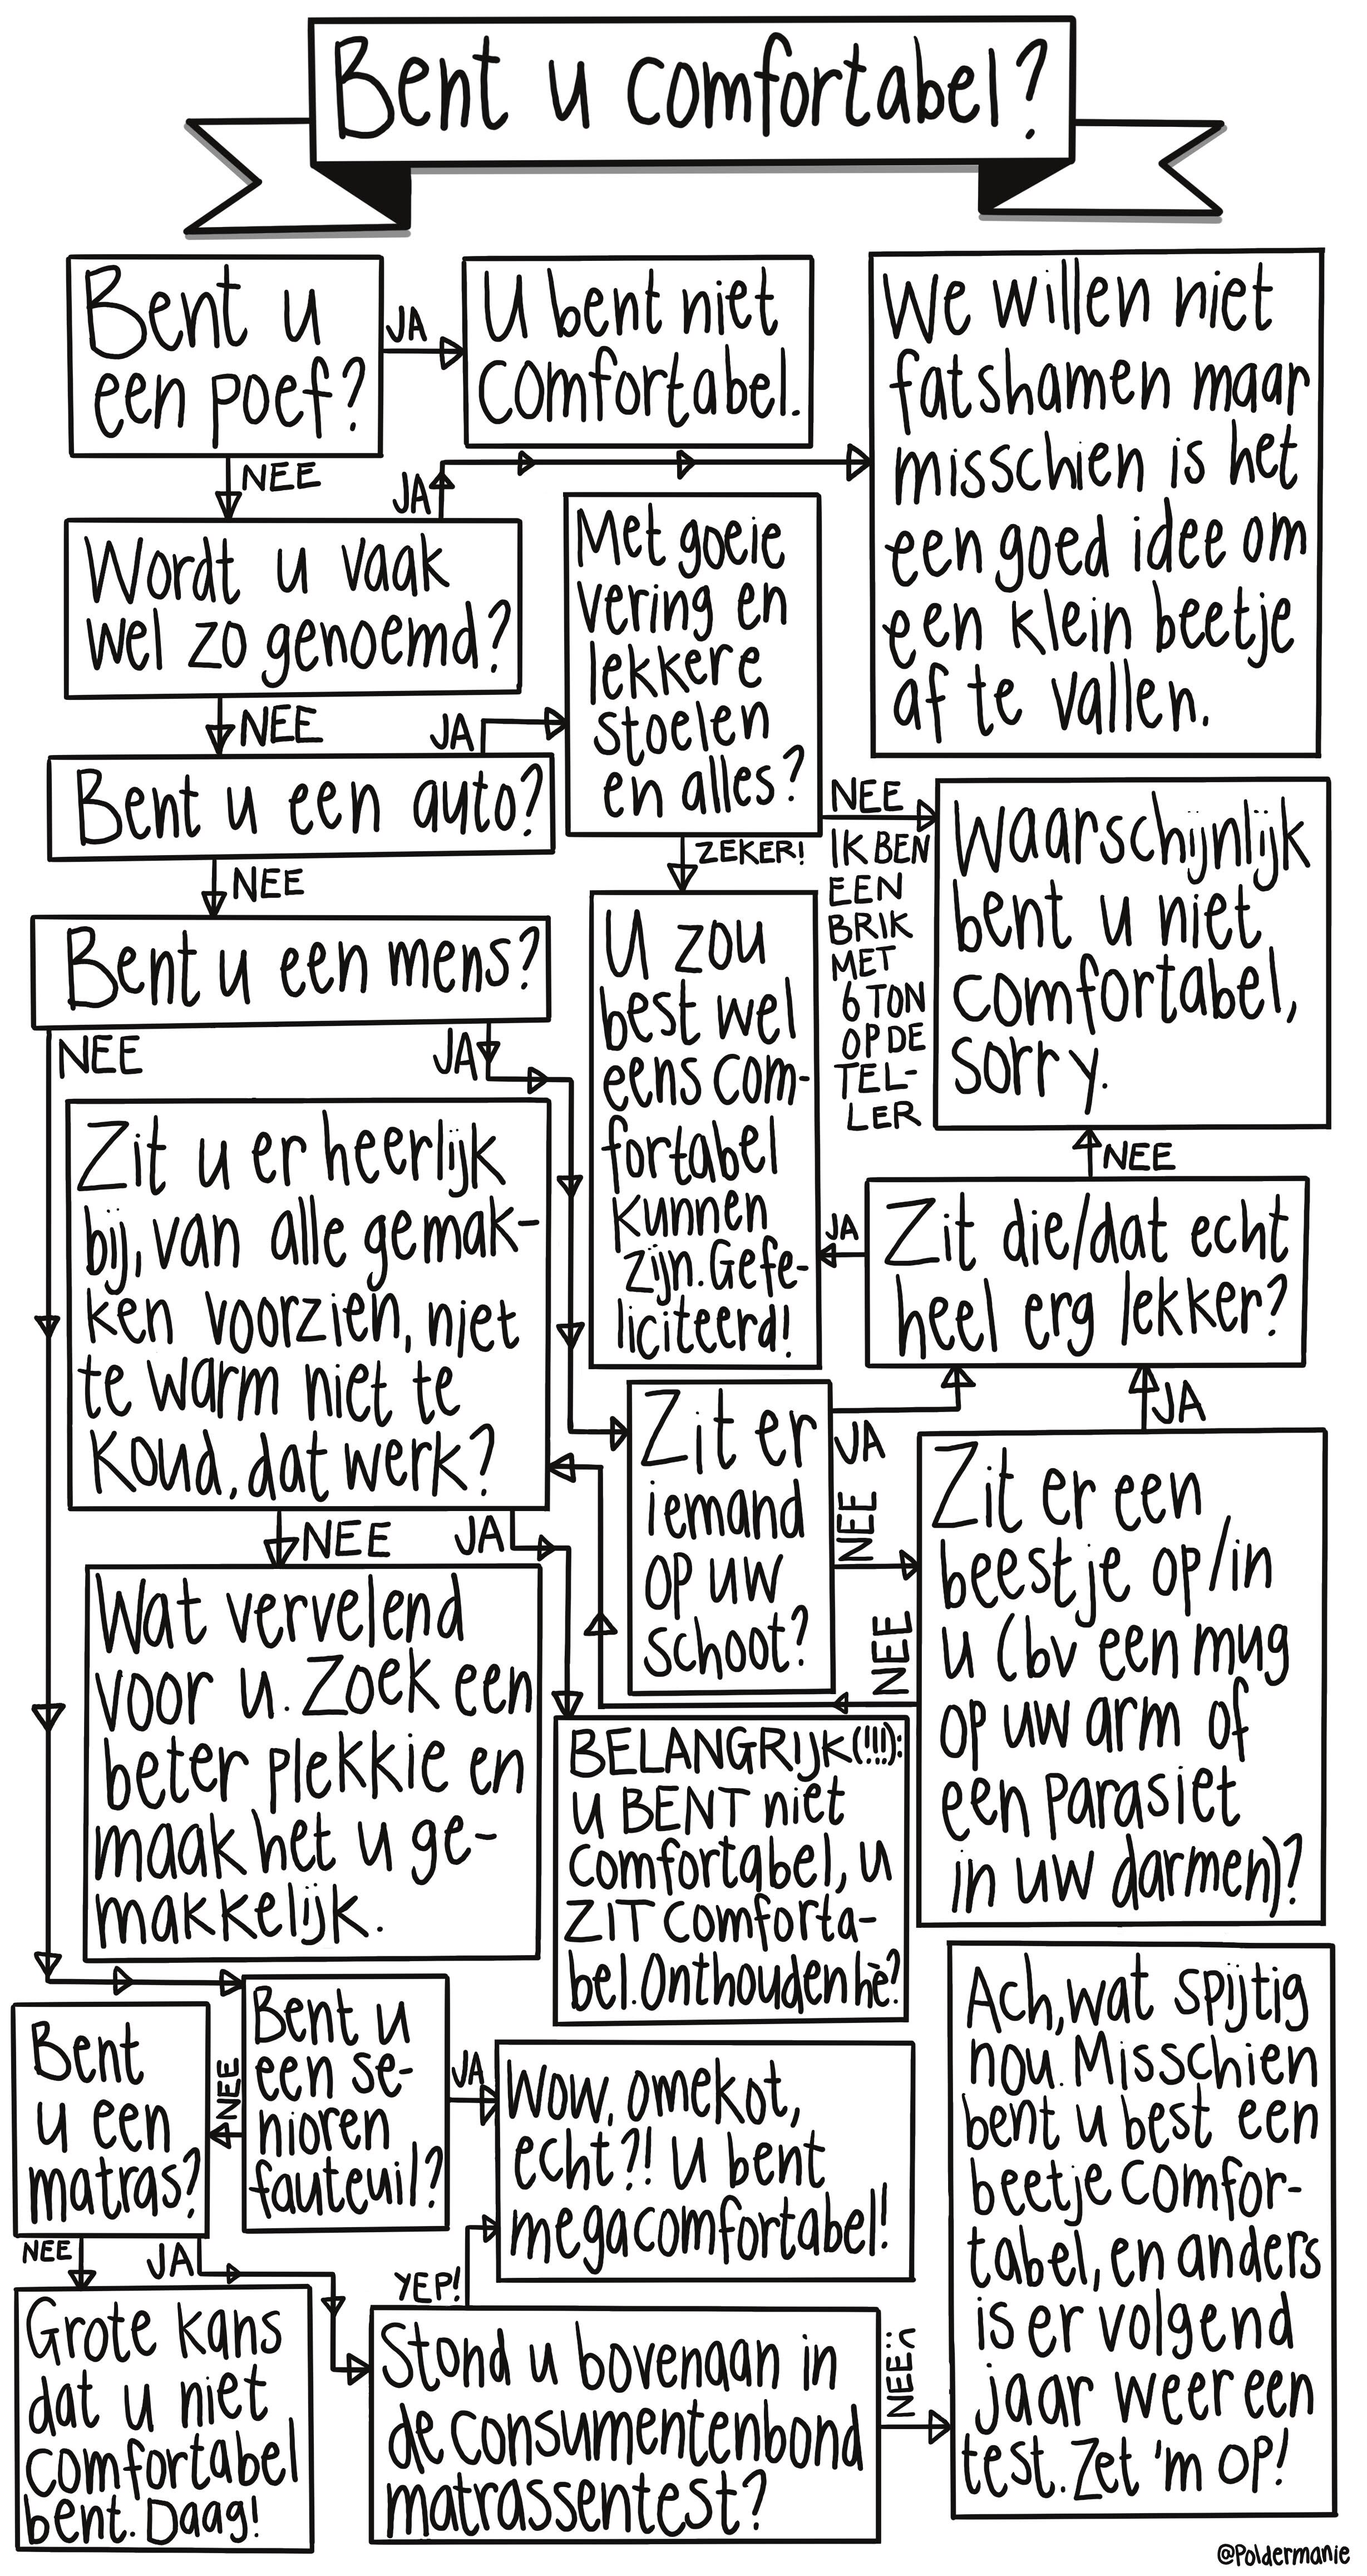 Bent u comfortabel?
Bent u
een poef?
JA
U bent niet
comfortabel.
We willen niet
fatshamen maar
misschien is het
een goed idee om
een klein beetje
af te vallen.
NEE
JA
Wordt u vaak
wel zo genoemd?
Met goeie
vering en
lekkere
stoelen
en alles?
NEE
JA
Bent u een auto?
NEE
IK BEN
EEN
BRIK
MET
6 TON
OP DE
TEL-
LER
Waarschijnlijk
bent u niet
comfortabel,
sorry.
ZEKER!
NEE
Bent u een mens?
U zou
best wel
eens com-
fortabel
kunnen
zijn. Gefe-
liciteerd!
NEE
JA
NEE
Zit u er heerlijk
bij, van alle gemak-
ken voorzien, niet
te warm niet te
koud, dat werk?
JA
Zit die/dat echt
heel erg lekker?
Zit er
iemand
op uw
schoot?
JA
NEE
JA
Zit er een
beestje op/in
u (bv een mug
op uw arm of
een parasiet
in uw darmen)?
NEE
NEE
JA
Wat vervelend
voor u. Zoek een
beter plekkie en
maak het u ge-
makkelijk.
BELANGRIJK(!!!):
u BENT niet
comfortabel, u
ZIT comforta-
bel. Onthouden hè?
Bent
u een
matras?
NEE
Bent u
een se-
nioren
fauteuil?
JA
Wow, omekot,
echt?!! U bent
megacomfortabel!
Ach, wat spijtig
nou. Misschien
bent u best een
beetje comfor-
tabel, en anders
is er volgend
jaar weer een
test. Zet 'm op!
NEE
JA
YEP!
Grote kans
dat u niet
comfortabel
bent. Daag!
Stond u bovenaan in
de consumentenbond
matrassentest?
NEEıı
@Poldermanie